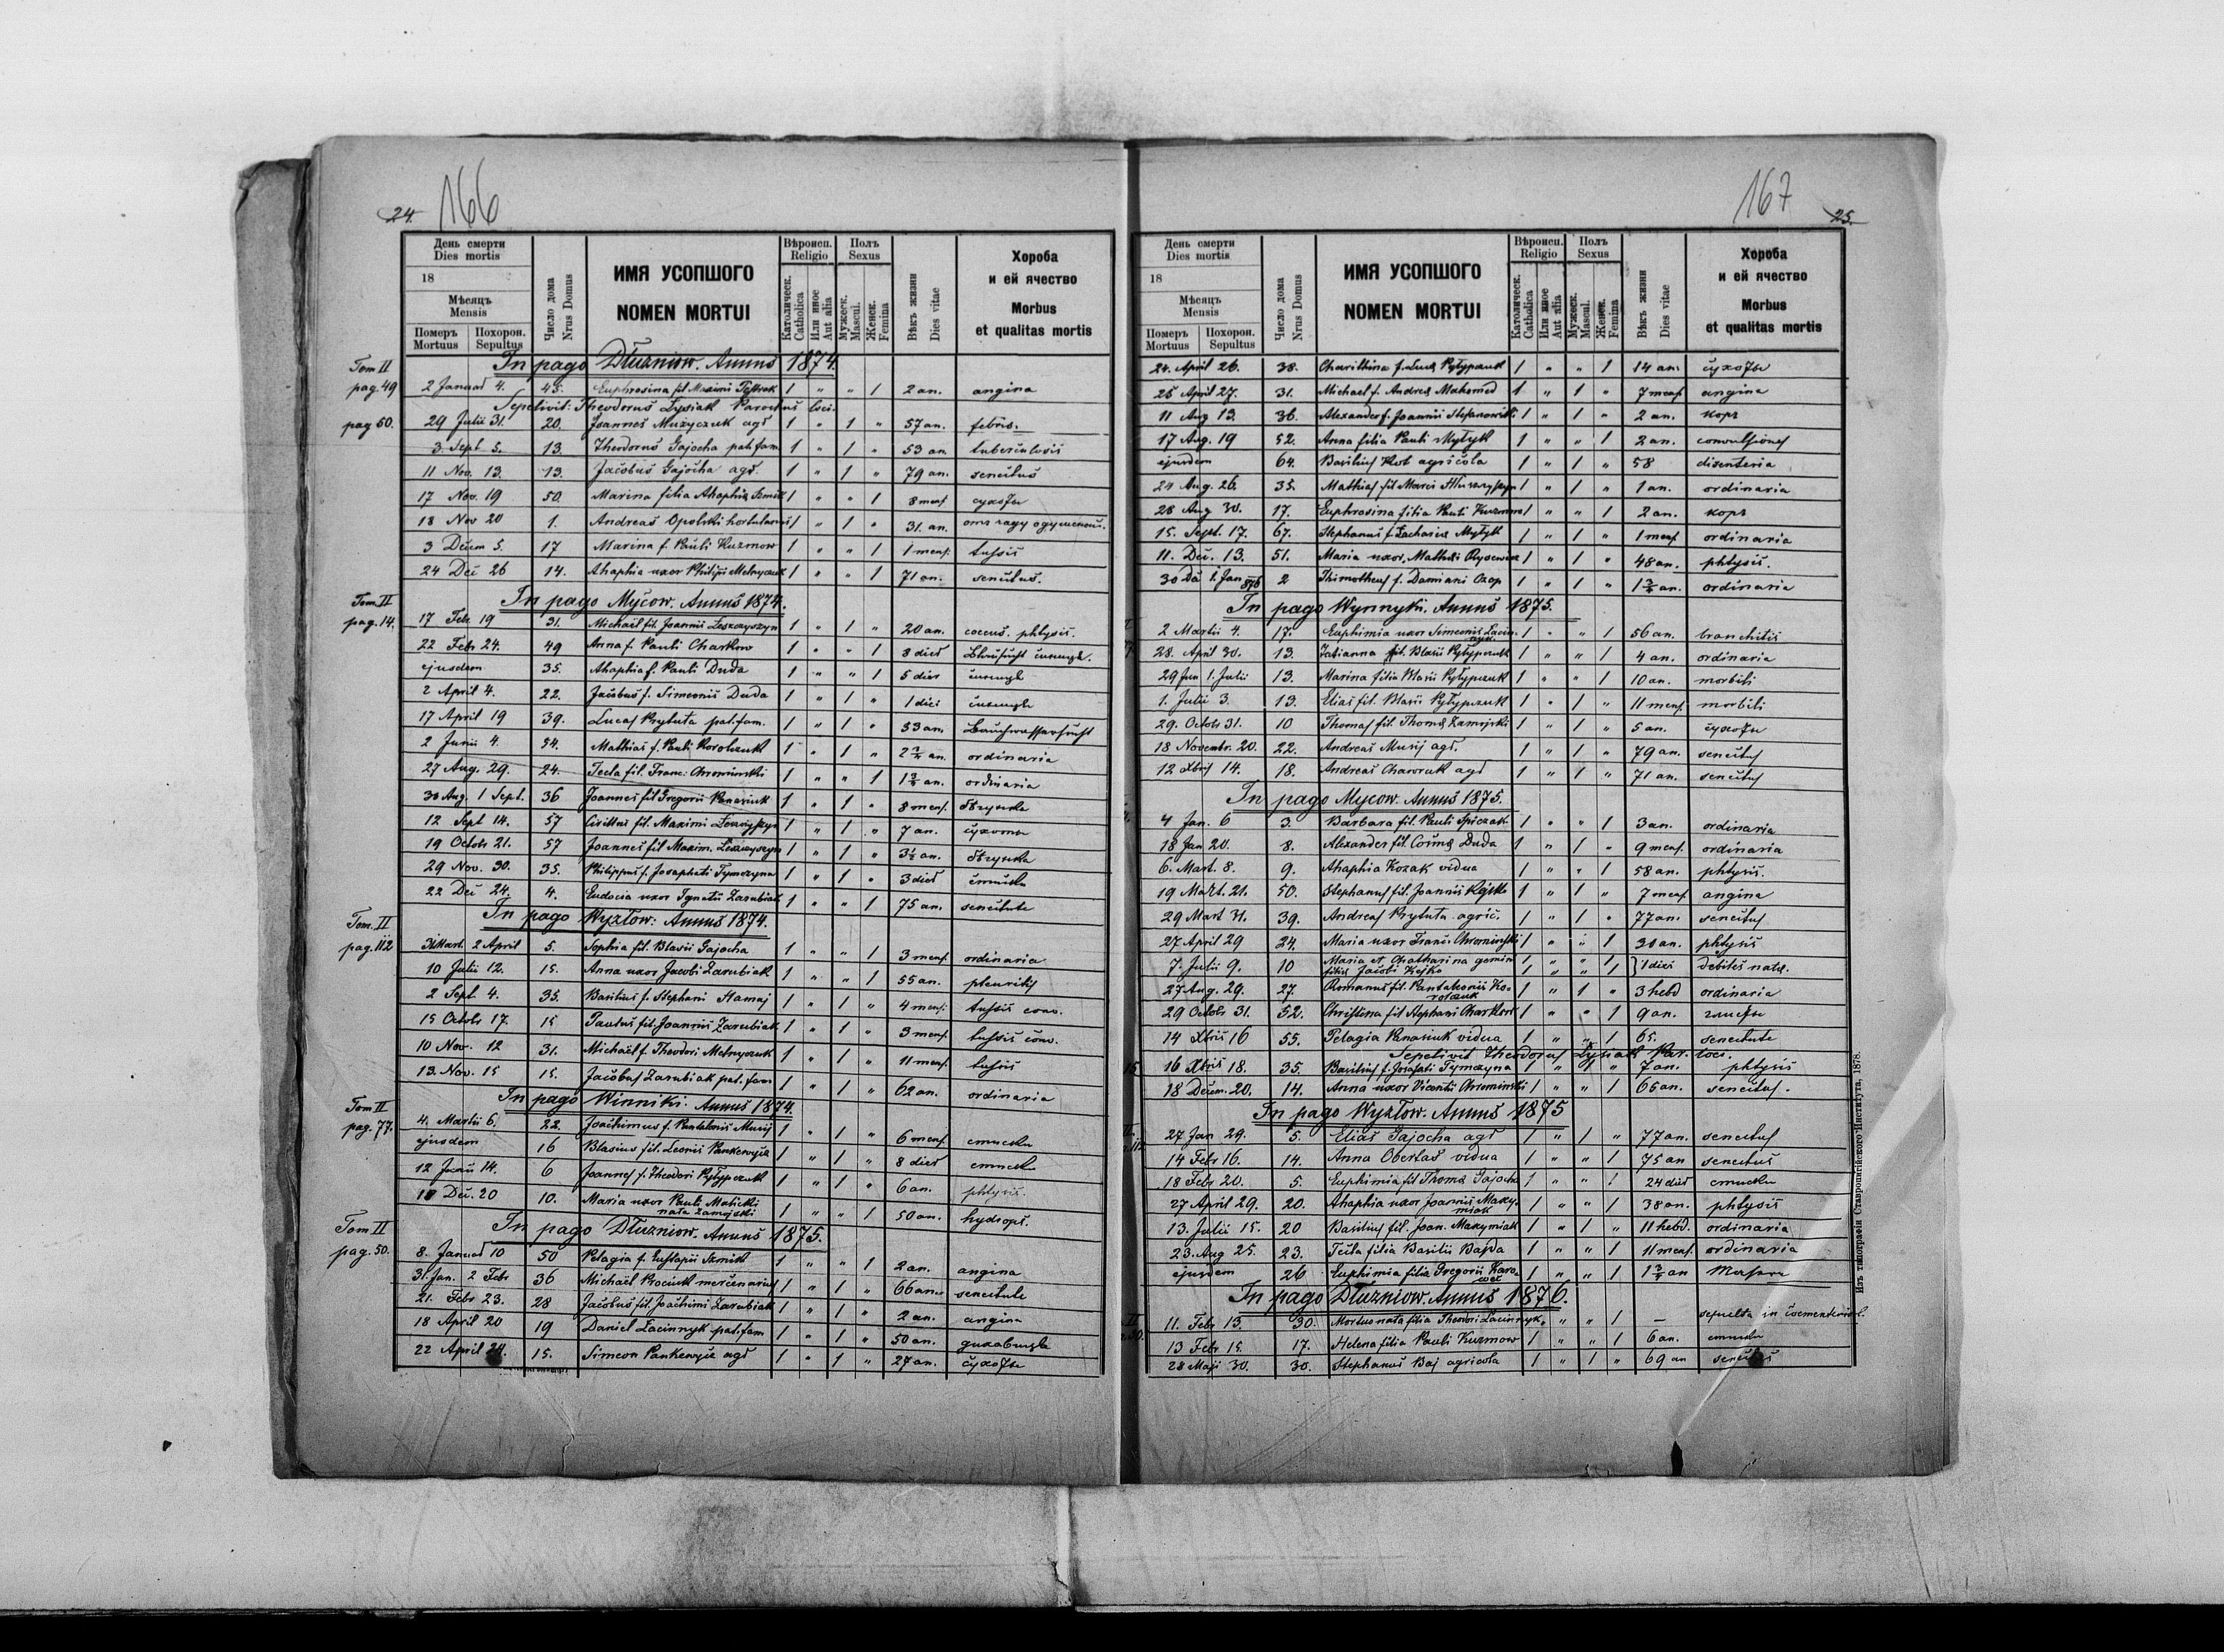 166
24.
День смерти
Dies mortis
18
Мѣсяцъ
Mensis
Померъ Похорон.
Mortuus Sepultus
Число дома
Nrus Domus
ИМЯ УСОПШОГО
NOMEN MORTUI
Вѣроисп.
Religio
Католическ.
Catholica
Или иное
Aut alia
Полъ
Sexus
Мужеск.
Mascul.
Женск.
Femina
Вѣкъ жизни
Dies vitae
Хороба
и ей ячество
Morbus
et qualitas mortis
In pago Dłużniow. Annus 1874.
Tom II
pag. 49 2 Januar 4. 45. Euphrosina fil. Maximi 1 " " 1 2 an. angina
Sepelivit: Theodorus Lysiak Parochus loci.
pag 50. 29 Julii 31. 20. Joannes Muzyczuk agr. 1 " 1 " 57 an. febris.
3. Sept. 5. 13. Theodorus Gajocha pat. fam. 1 " 1 " 53 an tuberculosis
11 Nov. 13. 13. Jacobus Gajocha agr. 1 " 1 " 79 an. senectus
17 Nov. 19 50. Marina filia Ahaphia Szmit 1 " " 1 8 mens сухоты
18 Nov 20 1. Andreas Opolski hortulanus 1 " 1 " 31. an.
3 Decem 5. 17 Marina f. Pauli Kuzmow 1 " " 1 1 mens. tussis
24 Dec 26 14. Ahaphia uxor Philippi Melnyczuk 1 " " 1 71 an. senectus.
Tom II
pag. 14. In pago Mycow. Annus 1874.
17 Feb. 19 31. Michael fil. Joannis Leszczyszyn 1 " 1 " 20 an. phtysis.
22 Febr 24. 49 Anna f. Pauli Charkow 1 " " 1 8 dies
ejusdem 35. Ahaphia f. Pauli Duda 1 " " 1 5 dies
2 April 4. 22. Jacobus f. Simeonis Duda 1 " 1 " 1 diei
17 April 19 39. Lucas Prytuta pat. fam. 1 " 1 " 53 an
2 Junii 4. 54. Mathias f. Pauli Korolczuk 1 " 1 " an. ordinaria
27 Aug. 29. 24. Tecla fil. Franc. Chrominski 1 " " 1 an. ordinaria
30 Aug. 1 Sept. 36 Joannes fil Gregorii Panasiuk 1 " 1 " 8 mens.
12 Sept 14. 57 fil. Maximi Leszczyszyn 1 " 1 " 7 an. сухоты
19 Octobr 21. 57 Joannes fil Maxim. Leszczyszyn 1 " 1 " 3½ an.
29 Nov. 30. 35. Philippus f. Josaphati Tymczyna 1 " 1 " 3 dies
22 Dec 24. 4. Eudocia uxor Ignatii Zarubiak 1 " " 1 75 an. senectute
Tom. II
pag. 112 In pago Wyżłow: Annus 1874.
31 Mart. 2 April 5. Sophia fil. Blasii Gajocha 1 " " 1 3 mens. ordinaria
10 Julii 12. 15. Anna uxor Jacobi Zarubiak 1 " " 1 55 an. pleuritis
2 Sept. 4. 35. Basilius f. Stephani Hamaj 1 " 1 " 4 mens. tussis conv.
15 Octobr 17. 15 Paulus fil. Joannis Zarubiak 1 " 1 " 3 mens. tussis conv.
10 Nov. 12 31. Michael f. Theodori Melnyczuk 1 " 1 " 11 mens. tussis
13. Nov. 15 15. Jacobus Zarubiak pat. fam 1 " 1 " 62 an. ordinaria
Tom II
pag. 77. In pago Winniki. Annus 1874.
4. Martii 6. 22. Joachimus f. Pantaleonis Musij 1 " 1 " 6 mens.
ejusdem 16 Blasius fil. Leonis Pankewycz 1 " 1 " 8 dies
12 14. 6 Joannes f. Theodori Pyłypczuk 1 " 1 " 6 an. phtysis.
18 Dec. 20 10. Maria uxor Pauli Malicki
nata Zamojski 1 " " 1 50 an. hydrops.
Tom II
pag. 50. In pago Dłużniow. Annus 1875.
8. Januar 10 50 Pelagia f. Eustapii Szmit 1 " " 1 2 an. angina
31. Jan. 2 Febr 36 Michael Prociuk mercenarius 1 " 1 " 66 an. senectute
21. Febr 23. 28 Jacobus fil. Joachimi Zarubiak 1 " 1 " 2 an. angina
18 April 20 19 Daniel Lacinnyk pat. fam 1 " 1 " 50 an.
22 April 24. 15. Simeon Pankewycz agr 1 " 1 " 27 an. сухоты
167
25.
День смерти
Dies mortis
18
Мѣсяцъ
Mensis
Померъ Похорон.
Mortuus Sepultus
Число дома
Nrus Domus
ИМЯ УСОПШОГО
NOMEN MORTUI
Вѣроисп.
Religio
Католическ.
Catholica
Или иное
Aut alia
Полъ
Sexus
Мужеск.
Mascul.
Женск.
Femina
Вѣкъ жизни
Dies vitae
Хороба
и ей ячество
Morbus
et qualitas mortis
24. April 26. 38. Charittina f. Luca Pyłypczuk 1 " " 1 14 an. сухоты
25 April 27. 31. Michael f. Andrea Mahomed 1 " 1 " 7 mens angina
11 Aug 13. 36. Alexander f. Joannis Stefanowski 1 " 1 " 2 an. коръ
17 Aug. 19 52. Anna filia Pauli Mytyk 1 " " 1 2 an. convulsiones
ejusdem 64. Basilius Kot agricola 1 " 1 " 58 disenteria
24 Aug. 26. 35. Mathias fil Marci 1 " 1 " 1 an. ordinaria
28 Aug 30. 17. Euphrosina filia Pauli Kuzmow 1 " " 1 2 an. коръ
15. Sept. 17. 67. Stephanus f. Zacharia Mytyk 1 " 1 " 1 mens ordinaria
11. Dec. 13. 51. Maria uxor Mathei 1 " 1 " 48 an. phtysis.
30 Dec 1. Jan 876 2 Thimotheus f. Damiani Czop 1 " 1 " an. ordinaria
In pago Wynnyki. Annus 1875.
2 Martii 4. 17. Euphimia uxor Simeonis Lacin-
nyk 1 " " 1 56 an. bronchitis
28. April 30. 13. Tatianna fil. Blasii Pyłypczuk 1 " " 1 4 an. ordinaria
29 Jun 1. Julii 13. Marina filia Blasii Pyłypczuk 1 " " 1 10 an. morbili
1. Julii 3. 13. Elias fil. Blasii Pyłypczuk 1 " 1 " 11 mens. morbili
29. Octobr 31. 10 Thomas fil. Thoma Zamojski 1 " 1 " 5 an. сухоты
18 Novembr. 20. 22. Andreas Musij agr. 1 " 1 " 79 an. senectus
12 Xbris 14. 18. Andreas Chawruk agr 1 " 1 " 71 an. senectus
In pago Mycow. Annus 1875.
4 Jan. 6 3. Barbara fil. Pauli Spiczak 1 " " 1 3 an. ordinaria
18 Jan 20. 8. Alexander fil. Cosma Duda 1 " 1 " 9 mens. ordinaria
6. Mart. 8. 9. Ahaphia Kozak vidua 1 " " 1 58 an. phtysis.
19 Mart. 21. 50. Stephanus fil. Joannis Kejko 1 " 1 " 7 mens angina
29 Mart 31. 39. Andreas Prytuta agric. 1 " 1 " 77 an. senectus
27 April 29 24. Maria uxor Franc. Chrominski 1 " " 1 30 an. phtysis
7. Julii 9. 10 Maria et Chatharina gemin
filia Jacobi Kejko 1 " " 1 1 diei debiles nata.
27 Aug. 29. 27. Romanus fil. Pantaleonis Ko-
rolczuk 1 " 1 " 3 hebd ordinaria
29 Octobr 31. 52. Christina fil Stephani Charkow 1 " " 1 9 an.
14 Xbris 16 55. Pelagia Panasiuk vidua 1 " " 1 65. senectute
Sepelivit Theodorus Lysiak Par. loci.
16 Xbris 18. 35. Basilius f. Josafati Tymczyna 1 " 1 " 7 an. phtysis
18 Decem. 20. 14. Anna uxor Vicentii Chrominski 1 " " 1 65 an. senectus.
In pago Wyżłow. Annus 1875
27 Jan 29. 5. Elias Gajocha agr 1 " 1 " 77 an. senectus
14 Febr 16. 14. Anna Oberlas vidua 1 " " 1 75 an senectus
18 Febr 20. 5. Euphimia fil Thoma Gajocha 1 " " 1 24 dies
27 April 29. 20. Ahaphia uxor Joannis Maxy-
miak 1 " " 1 38 an. phtysis
13. Julii 15. 20 Basilius fil. Joan. Maxymiak 1 " 1 " 11 hebd. ordinaria
23. Aug 25. 23. Tecla filia Basilii Bajda 1 " " 1 11 mens. ordinaria
ejusdem 26 Euphimia filia Gregorii 1 " " 1 an
In pago Dłużniow. Annus 1876.
11. Febr 13. 30. Mortuo nata filia Theodori Lacinnyk. " " 1 — sepulta in
13 Febr 15. 17. Helena filia Pauli Kuzmow 1 " " 1 6 an.
28 Maji 30. 30. Stephanus Baj agricola 1 " 1 " 69 an senectus
Изъ типографіи Ставропигійского Института, 1878.